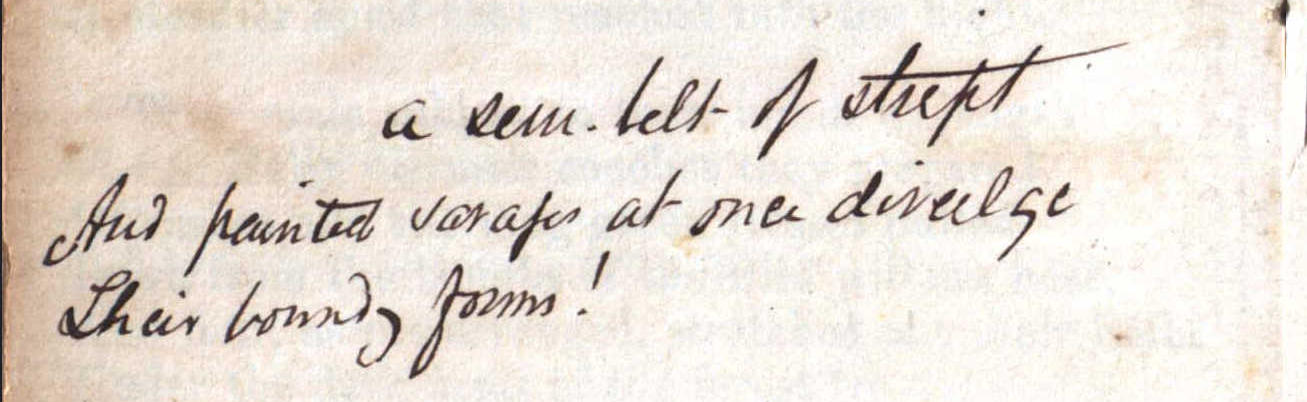 a sem. belt of stript
And painted savages at once divulge
Their bound^g forms!